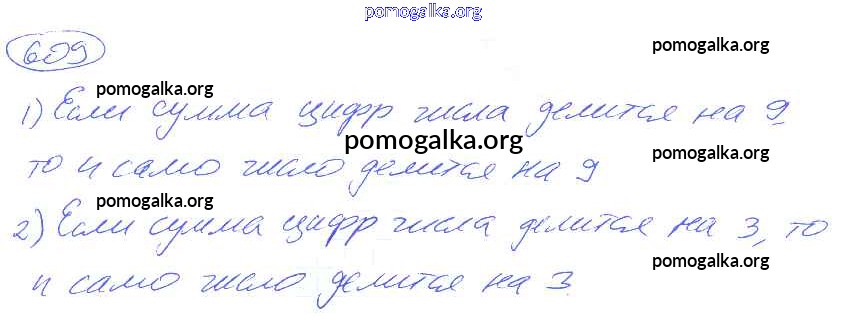 pomogalka.org
609
pomogalka.org
pomogalka.org
1) Если сумма цифр числа делится на 9
pomogalka.org
то и само число делится на 9
pomogalka.org
pomogalka.org
2) Если сумма цифр числа делится на 3, то
и само число делится на 3
pomogalka.org